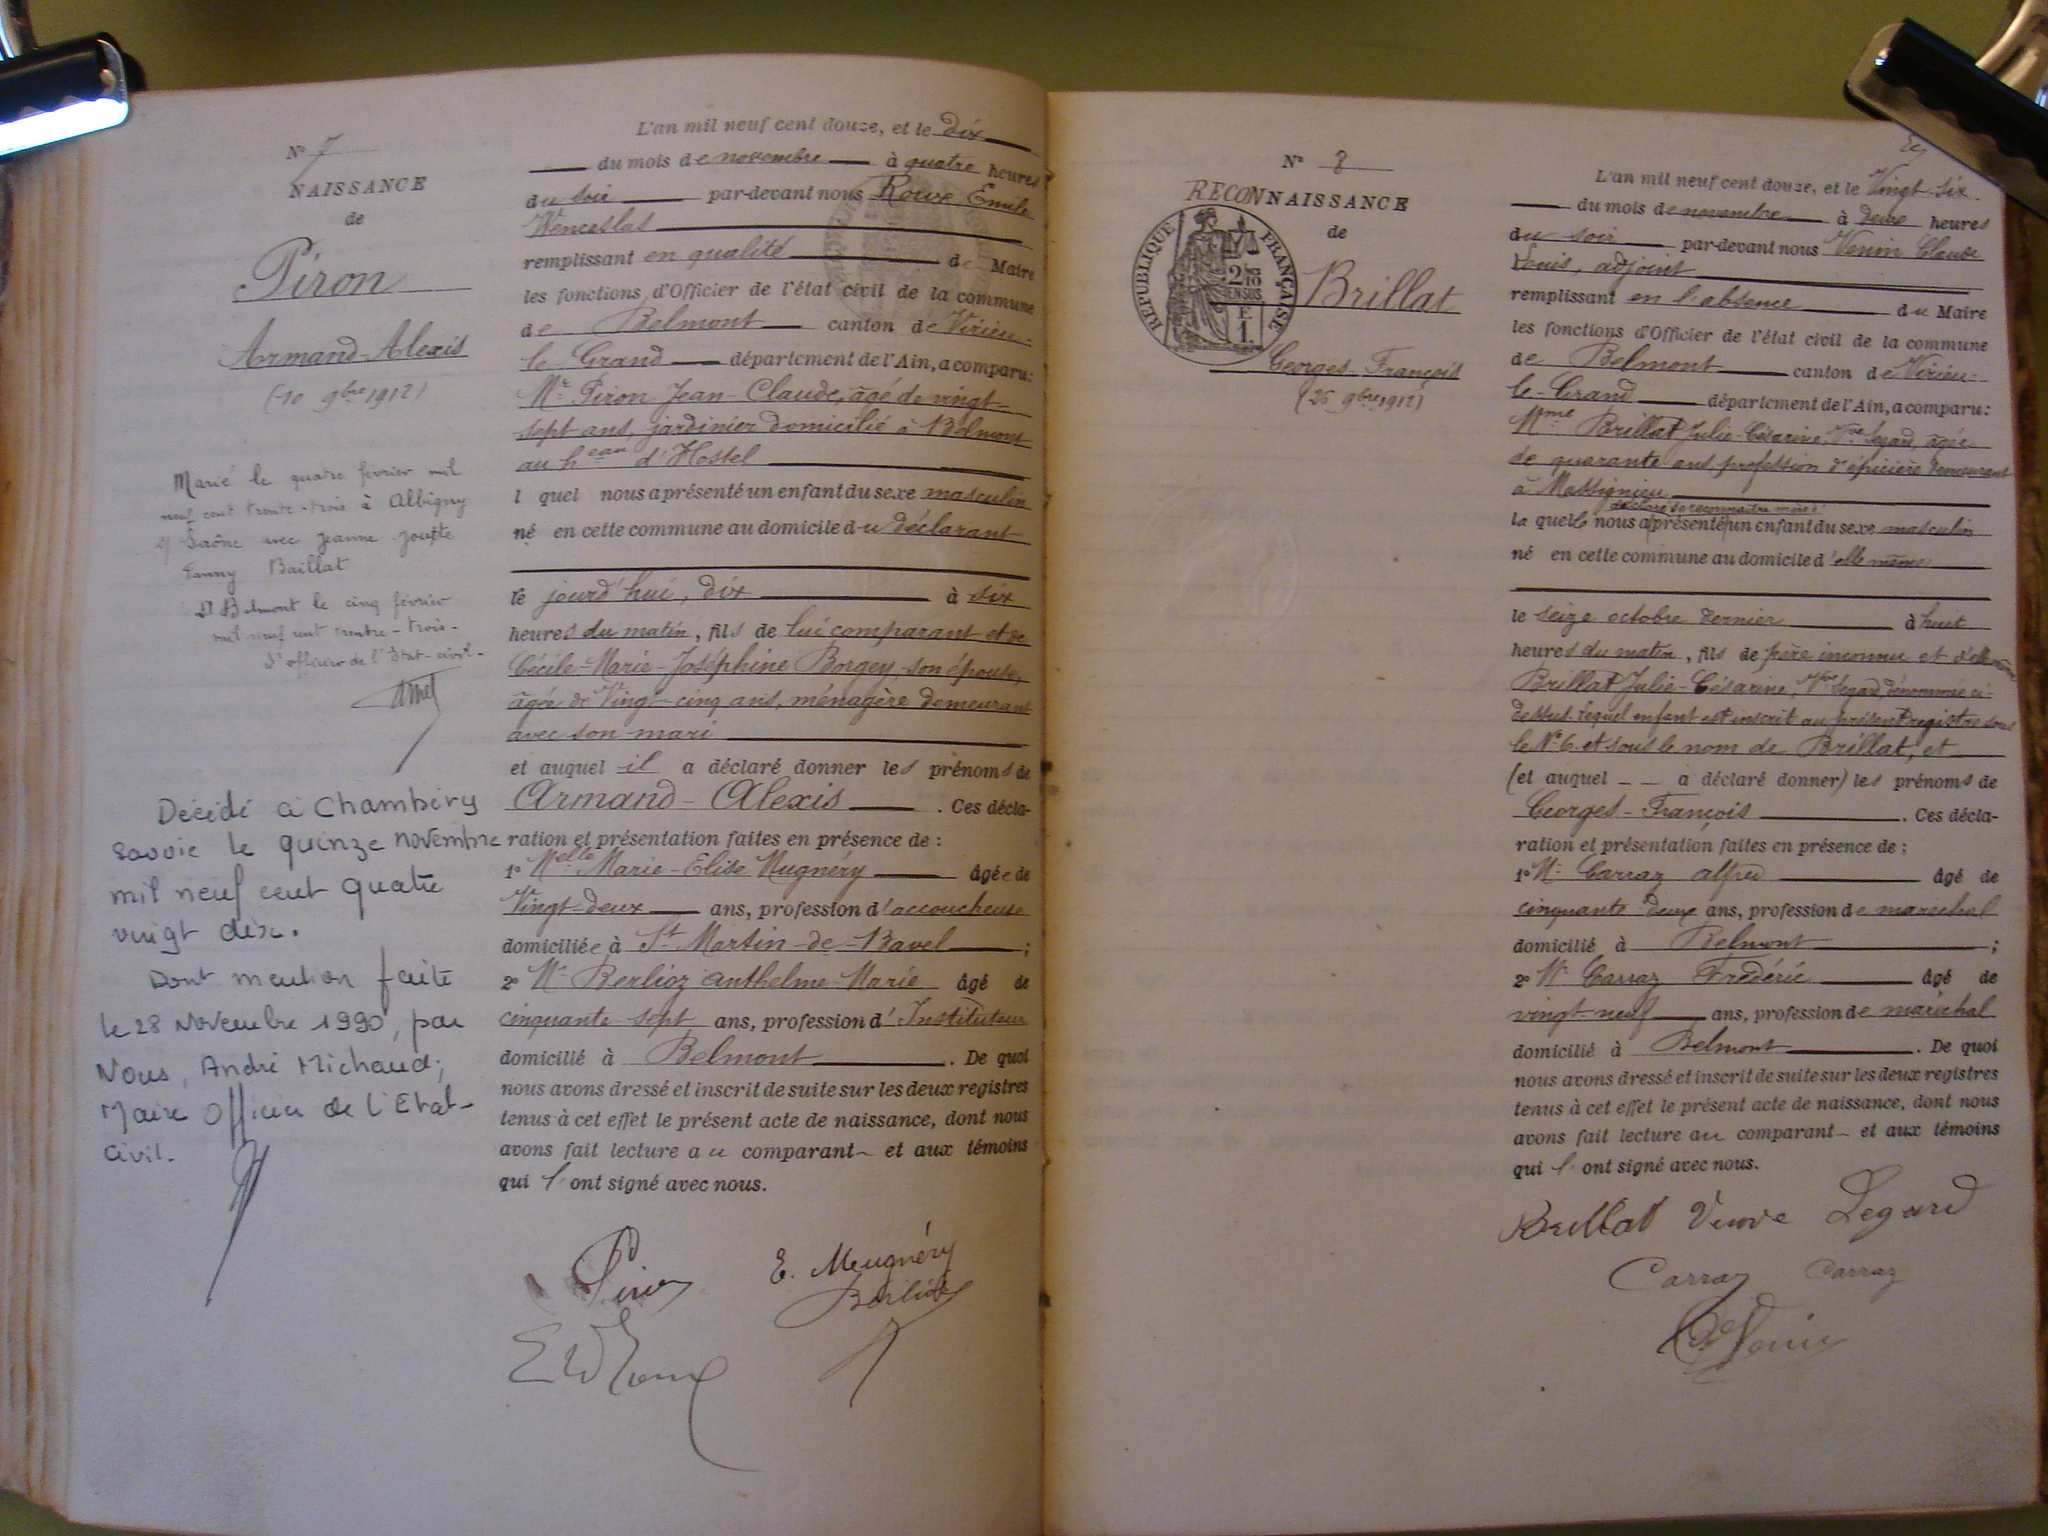 N° 7
NAISSANCE
de
Piron
Armand-Alexis
(10 9bre 1912)
Marié le quatre février mil
neuf cent trente-trois à Albigny
s/ Saône avec Jeanne
Fanny Baillat
Belmont le cinq février
mil neuf cent trente-trois-
officier de l'Etat-civil-
Décédé à Chambéry
Savoie le quinze novembre
mil neuf cent quatre
vingt dix.
Dont mention faite
le 28 Novembre 1990, par
Nous, André Michaud,
Maire Officier de l'Etat-
civil.
L'an mil neuf cent douze, et le dix
du mois de novembre à quatre heures
du soir par-devant nous Roux, Emile
Wenceslas
remplissant en qualité de Maire
les fonctions d'Officier de l'état civil de la commune
de Belmont canton de Virieu-
le Grand département de l'Ain, a comparu:
Mr Piron Jean-Claude, âgé de vingt-
sept ans, jardinier domicilié à Belmont
au heau d'Hostel
l quel nous a présenté un enfant du sexe masculin
né en cette commune au domicile du déclarant
le jourd'hui, dix à six
heures du matin, fils de lui comparant et de
Cécile-Marie-Joséphine Borgey, son épouse,
âgée de Vingt-cinq ans, ménagère demeurant
avec son mari
et auquel il a déclaré donner les prénoms de
Armand-Alexis. Ces décla-
ration et présentation faites en présence de :
1° Melle Marie-Elise Mugnéry âgée de
Vingt-deux ans, profession d'accoucheuse
domiciliée à St Martin-de-Bavel ;
2° Mr Berlioz Anthelme-Marie âgé de
cinquante-sept ans, profession d'Instituteur
domicilié à Belmont. De quoi
nous avons dressé et inscrit de suite sur les deux registres
tenus à cet effet le présent acte de naissance, dont nous
avons fait lecture au comparant et aux témoins
qui l'ont signé avec nous.
Piron
E. Meugnéry
Berlioz
N° 8
RECONNAISSANCE
de
REPUBLIQUE FRANÇAISE
2/10 EN SUS
1 F
Brillat
Georges-François
(26 9bre 1912)
L'an mil neuf cent douze, et le Vingt-six
du mois de novembre à deux heures
du soir par-devant nous Venin Claude
Louis, adjoint
remplissant en l'absence du Maire
les fonctions d'Officier de l'état civil de la commune
de Belmont canton de Virieu-
le-Grand département de l'Ain, a comparu:
Mme Brillat Julie-Césarine, Vve Legard, âgée
de quarante ans profession d'épicière demeurant
à Massignieu
déclaré se reconnaître mère d'
la quelle nous a (présenté) un enfant du sexe masculin
né en cette commune au domicile d'elle même
le seize octobre dernier à huit
heures du matin, fils de père inconnu et d'elle même
Brillat Julie-Césarine, Vve Legard dénommée ci-
dessus. Lequel enfant est inscrit au présent registre sous
le N° 6 et sous le nom de Brillat, et
(et auquel a déclaré donner) les prénoms de
Georges-François. Ces décla-
ration et présentation faites en présence de :
1° Mr Carraz Alfred âgé de
cinquante deux ans, profession de maréchal
domicilié à Belmont ;
2° Mr Carraz Frédéric âgé de
vingt-neuf ans, profession de maréchal
domicilié à Belmont. De quoi
nous avons dressé et inscrit de suite sur les deux registres
tenus à cet effet le présent acte de naissance, dont nous
avons fait lecture au comparant et aux témoins
qui l'ont signé avec nous.
Brillat Veuve Legard
Carraz Carraz
Venin